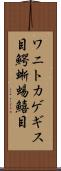 ワニトカゲギス
目鰐蜥蜴鱚目